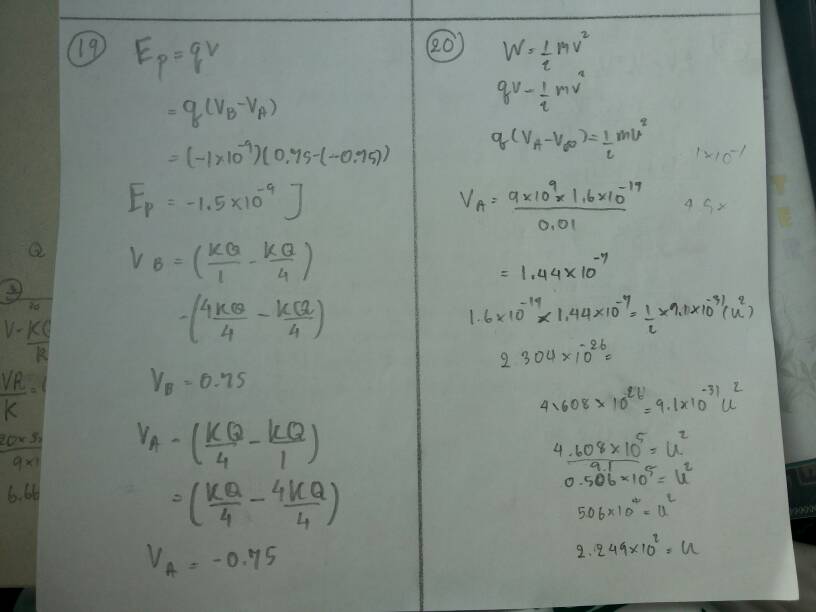 19
E_p = qV
= q(V_B - V_A)
= (-1×10^-9)(0.75-(-0.75))
E_p = -1.5×10^-9 J
V_B = (KQ/1 - KQ/4)
- (4KQ/4 - KQ/4)
V_B = 0.75
V_A - (KQ/4 - KQ/1)
= (KQ/4 - 4KQ/4)
V_A = -0.75
20
W = 1/2 mv^2
qv - 1/2 mv^2
q(V_A - V_∞) = 1/2 mu^2
V_A = 9×10^9 × 1.6×10^-19 / 0.01
= 1.44×10^-7
1.6×10^-19 × 1.44×10^-7 = 1/2 × 9.1×10^-31 (u^2)
2.304×10^-26 =
4.608×10^-26 = 9.1×10^-31 u^2
4.608×10^5 / 9.1 = u^2
0.506×10^5 = u^2
= u^2
2.249×10^2 = u
Q
V - KQ
VR
K
9×1
6.66